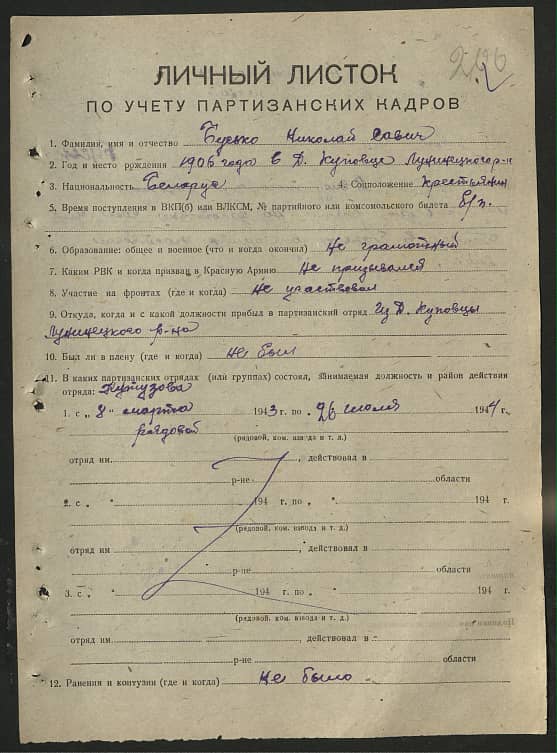 ЛИЧНЫЙ ЛИСТОК
ПО УЧЕТУ ПАРТИЗАНСКИХ КАДРОВ
1. Фамилия, имя и отчество Бусько Николай Савич
2. Год и место рождения 1906 года в Д. Куповцы Лунинецкого р-н
3. Национальность Беларус 4. Соцположение крестьянин
5. Время поступления в ВКП(б) или ВЛКСМ, № партийного или комсомольского билета б/п.
6. Образование: общее и военное (что и когда окончил) Не грамотный
7. Каким РВК и когда призван в Красную Армию Не призывался
8. Участие на фронтах (где и когда) Не участвовал
9. Откуда, когда и с какой должности прибыл в партизанский отряд Из Д. Куповцы
Лунинецкого р-на
10. Был ли в плену (где и когда) Не был
11. В каких партизанских отрядах (или группах) состоял, занимаемая должность и район действия
отряда: Кутузова
1. с „ 8 " марта 1943 г. по „ 26 июля 1944 г.
рядовой
(рядовой, ком. взвода и т. д.)
отряд им. , действовал в
р-не области
2. с „ " 194 г. по „ " 194 г.
(рядовой, ком. взвода и т. д.)
отряд им , действовал в
р-не области
3. с „ " 194 г. по „ " 194 г.
(рядовой, ком. взвода и т. д.)
отряд им. , действовал в
р-не области
12. Ранения и контузии (где и когда) Не было